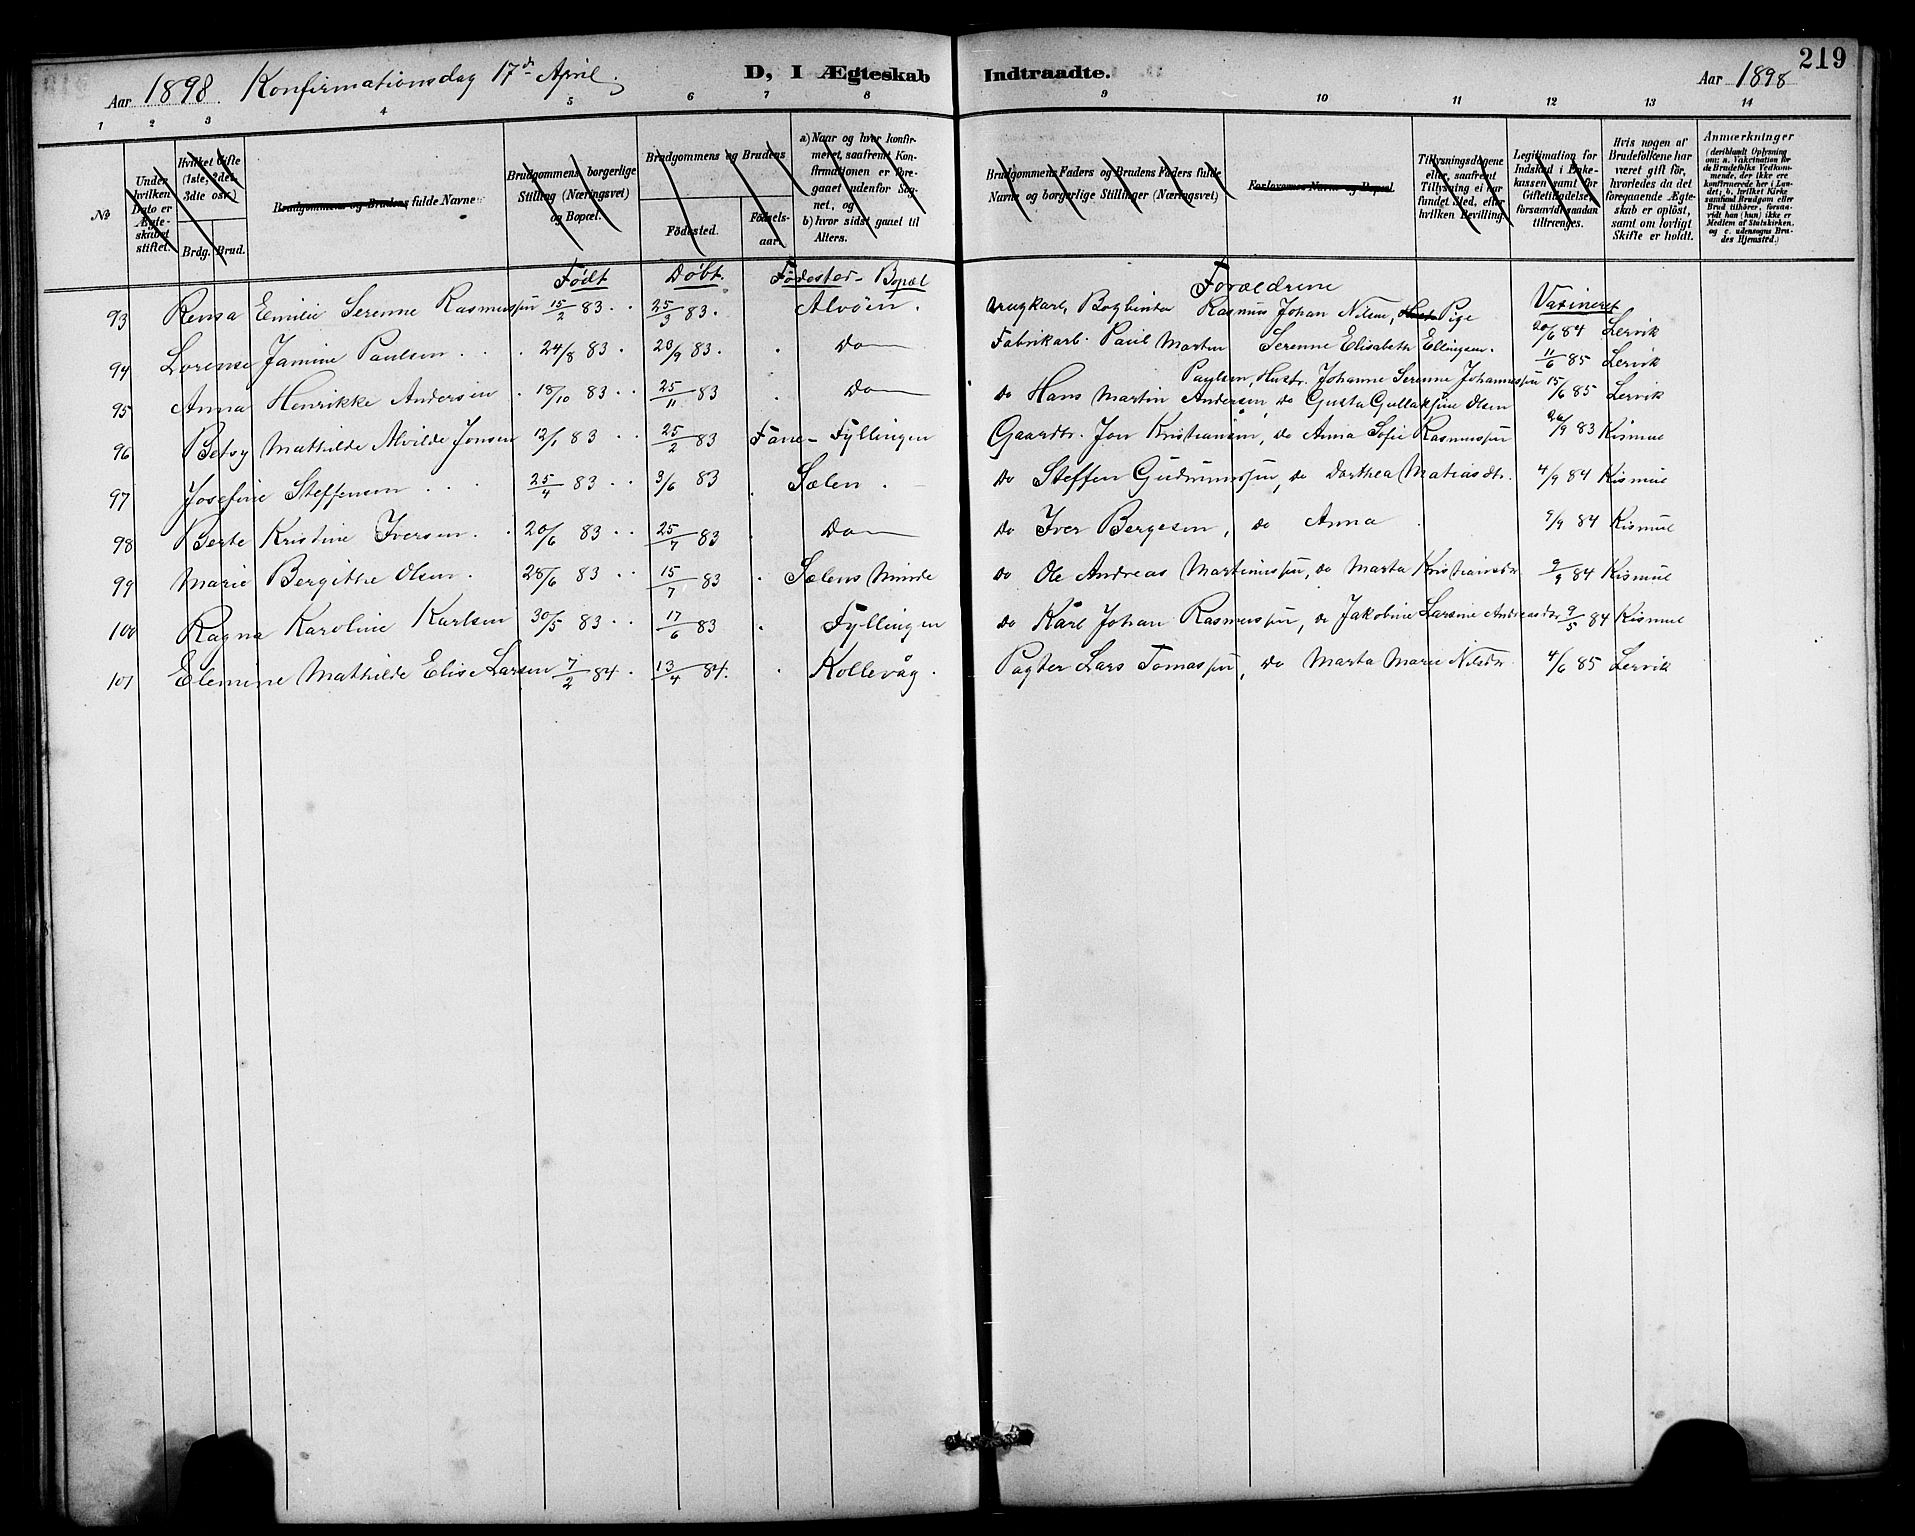 219
Aar 1898. Konfirmationsdag 17de April. D, I Ægteskab Indtraadte. Aar 1898
1 2 3 4 5 6 7 8 9 10 11 12 13 14
No
Under hvilken Dato er Ægteskabet stiftet.
Hvilket Gifte (1ste, 2det, 3die osv.)
Brdg. Brud.
Brudgommens og Brudens fulde Navne.
Brudgommens borgerlige Stilling (Næringsvei) og Bopæl.
Brudgommens og Brudens
Fødested.
Fødselsaar.
a) Naar og hvor konfirmeret, saafremt Konfirmationen er foregaaet udenfor Sognet, og
b) hvor sidst gaaet til Alters.
Brudgommens Faders og Brudens Faders fulde Navne og borgerlige Stillinger (Næringsvei)
Forlovernes Navne og Bopæl.
Tillysningsdagene eller, saafremt Tillysning ei har fundet Sted, efter hvilken Bevilling.
Legitimation for Indskud i Enkekassen samt for Giftetilladelse, forsaavidt saadan tiltrænges.
Hvis nogen af Brudefolkene har været gift før, hvorledes da det foregaaende Ægteskab er opløst, samt om lovligt Skifte er holdt.
Anmærkninger
(deriblandt Oplysning om: a. Vakcination for de Brudefolks Vedkommende, der ikke ere konfirmerede her i Landet; b, hvilket Kirkesamfund Brudgom eller Brud tilhører, forsaavidt han (hun) ikke er Medlem af Statskirken, og c. udensogns Brudes Hjemsted.)
Født Døbt. Fødested - Bopæl Forældrene Vaxineret
93 Rensa Emilie Serenne Rasmussen 15/2 83. 25/3 83. Alvøen. Brugkarl, Bogbinder Rasmus Johan Nilsen, Pige 20/6 84 Lervik
Serenne Elisabeth Ellingsen.
94 Lorense Jamine Paulsen 24/8 83. 23/9 83. Do Fabrikarb. Paul Martin 11/6 85 Lervik
Paulsen, Hustr. Johanne Serenne Johannessen
95 Anna Henrikke Andersen 18/10 83. 25/11 83 Do do Hans Martin Andersen, do Gusta Gullaksine Olsen 15/6 85 Lervik
96 Betsy Mathilde Alvilde Jonsen 12/1 83 25/2 83 Fane - Fyllingen Gaardbr. Jon Kristiansen, do Anna Sofie Rasmussen 26/9 83 Kismul
97 Josefine Steffensen 25/4 83 3/6 83 Sælen. do Steffen Gudmunssen, do Dorthea Matiasdtr. 4/9 84 Kismul
98 Berte Kristine Iversen. 20/6 83 25/7 83 Do do Iver Bergesen, do Anna 9/9 84 Kismul
99 Marie Bergithe Olsen. 28/6 83 15/7 83 Sælens Minde do Ole Andreas Martinussen, do Marta Kristiansdtr 9/9 84 Kismul
100 Ragna Karoline Karlsen 30/5 83 17/6 83 Fyllingen do Karl Johan Rasmussen, do Jakobine Larsine Andreasdtr 9/5 84 Kismul
101 Elemine Mathilde Elise Larsen 7/2 84. 13/4 84. Kollevåg. Pagter Lars Tomassen, do Marta Marie Nilsdtr. 4/6 85 Lervik